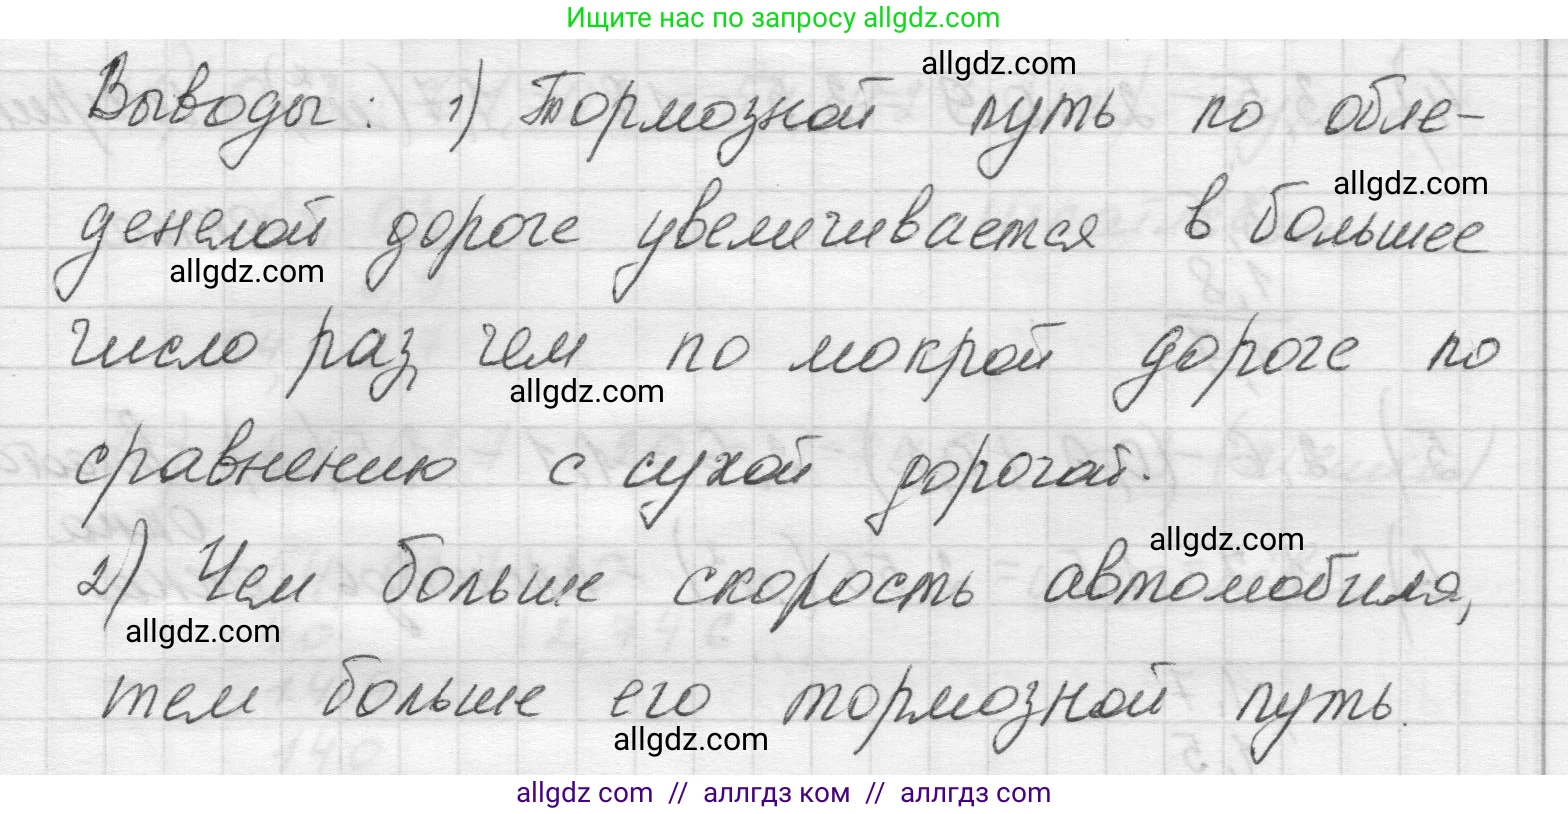 Ищите нас по запросу allgdz.com
allgdz.com
Выводы: 1) Тормозной путь по обле-
allgdz.com
денелой дороге увеличивается в большее
allgdz.com
число раз, чем по мокрой дороге по
allgdz.com
сравнению с сухой дорогой.
allgdz.com
2) Чем больше скорость автомобиля,
allgdz.com
тем больше его тормозной путь.
allgdz.com
allgdz com // аллгдз ком // аллгдз com